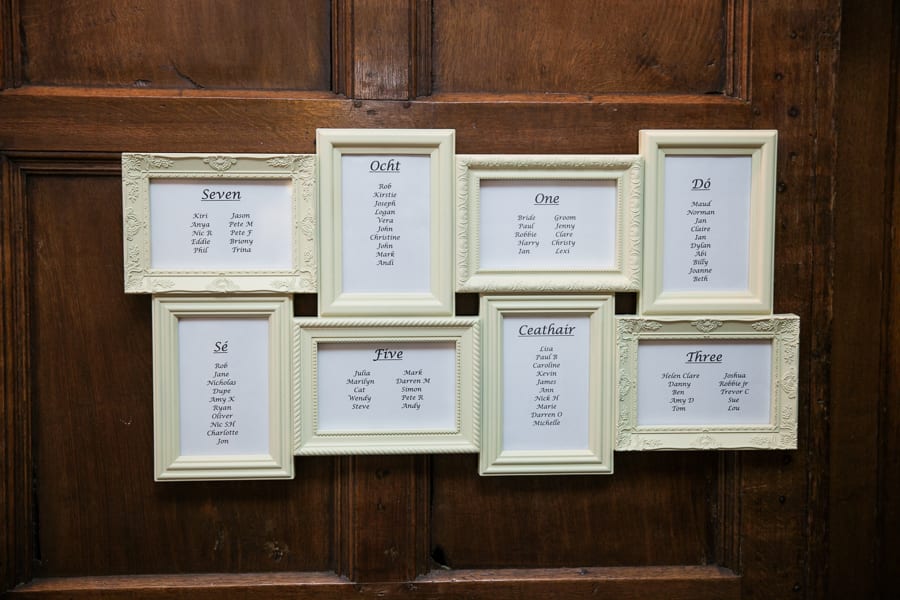 Seven
Kiri Jason
Anya Pete M
Nic R Pete F
Eddie Briony
Phil Trina
Ocht
Rob
Kirstie
Joseph
Logan
Vera
John
Christine
John
Mark
Andi
One
Bride Groom
Paul Jenny
Robbie Clare
Harry Christy
Ian Lexi
Dó
Maud
Norman
Jan
Claire
Ian
Dylan
Abi
Billy
Joanne
Beth
Sé
Rob
Jane
Nicholas
Dupe
Amy K
Ryan
Oliver
Nic SH
Charlotte
Jon
Five
Julia Mark
Marilyn Darren M
Cat Simon
Wendy Pete R
Steve Andy
Ceathair
Lisa
Paul B
Caroline
Kevin
James
Ann
Nick H
Marie
Darren O
Michelle
Three
Helen Clare Joshua
Danny Robbie jr
Ben Trevor C
Amy D Sue
Tom Lou